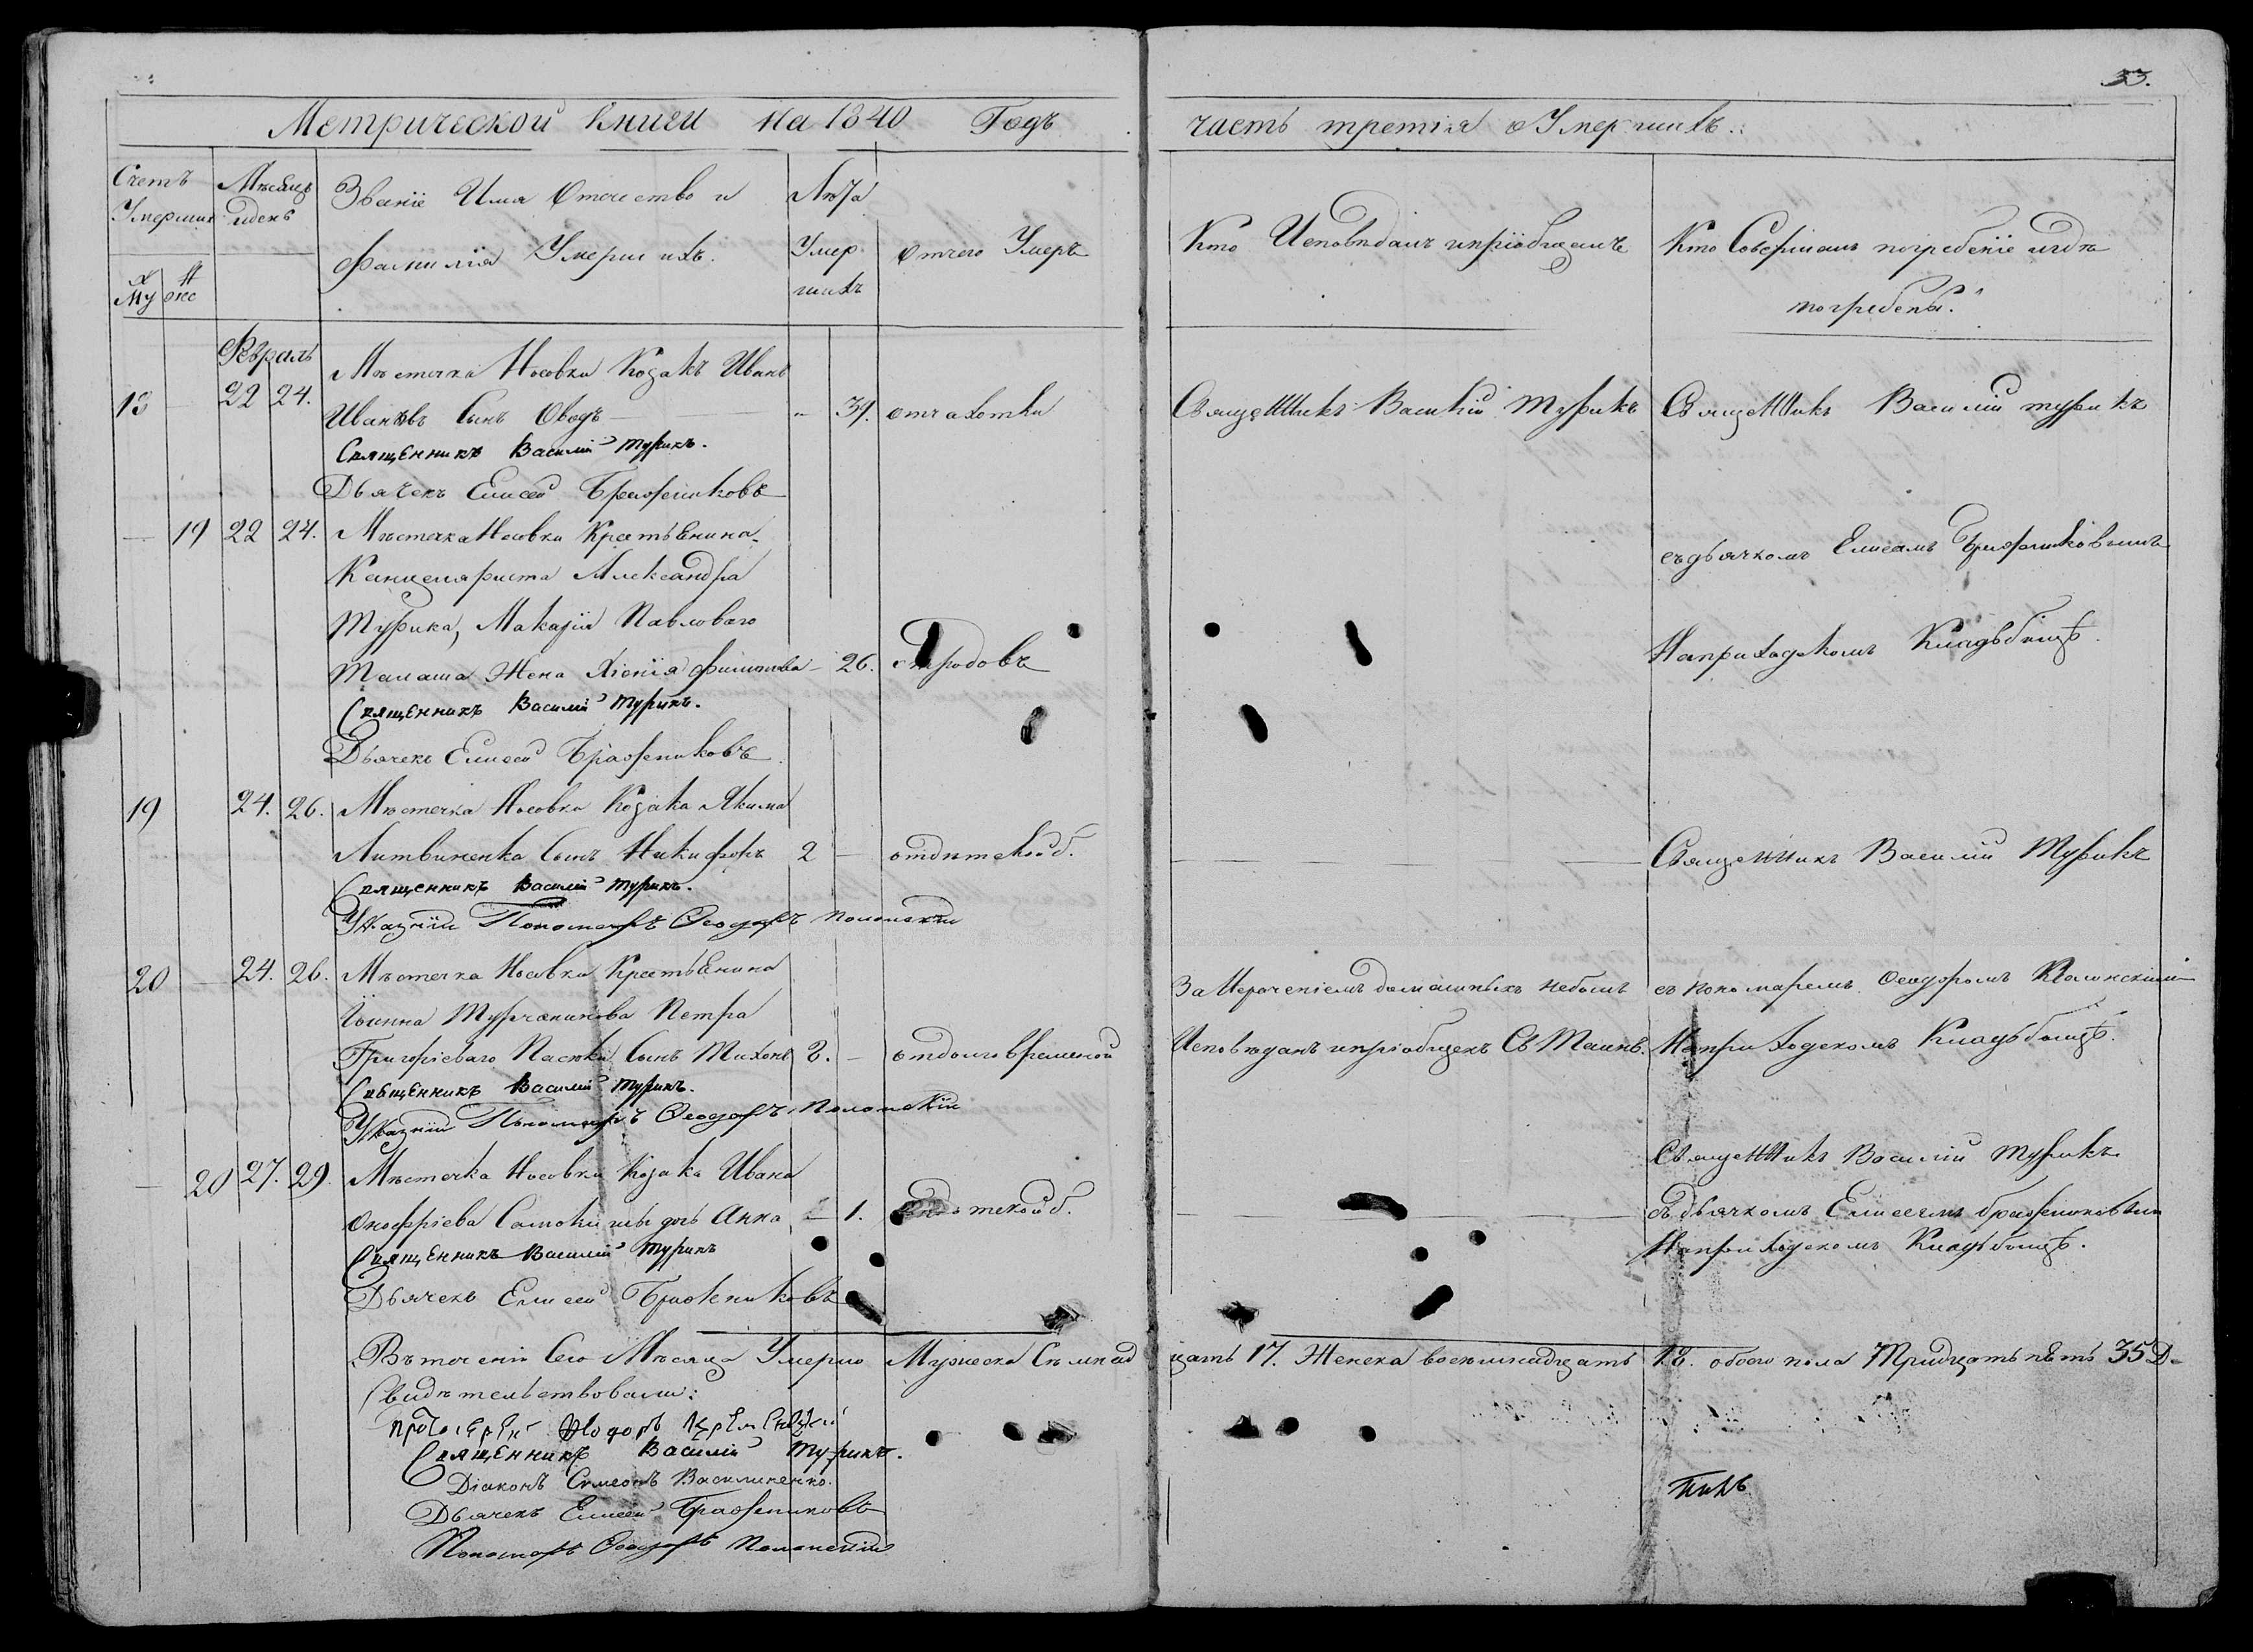 33.
Метрической книги на 1840 Годъ часть третія о Умершихъ.
Счетъ Умерших
Мѣсяцъ и день
Званіе Имя Отчество и
фамилія Умершихъ.
Лѣта
Умер
шихъ
Отчего Умеръ
Кто Исповѣдалъ и пріобщалъ
Кто Совершалъ погребеніе и гдѣ
погребены.
Му же
Февраль
Мѣстечка Носовки Козакъ Иванъ
18 22 24. Ивановъ Сынъ Оводъ - 31. отчахотки Священникъ Василій Турикъ Священникъ Василій Турикъ
Священникъ Василій Турикъ.
Дьячекъ Елисей Бражниковъ
19 22 24. Мѣстечка Носовки Крестьянина
съ дьячкомъ Елисеемъ Бражниковымъ
Канцеляриста Александра
Турика, Макарія Павловаго
На приходскомъ Кладбищѣ.
Малаша Жена Ксенія Филипова - 26. отродовъ
Священникъ Василій Турикъ.
Дьячекъ Елисей Бражниковъ
19 24. 26. Мѣстечка Носовки Козака Якима
Литвиненка Сынъ Никифоръ 2 - отдѣтской б. Священникъ Василій Турикъ
Священникъ Василій Турикъ.
Указній Пономарь Феодоръ Полонскій
20 24. 26. Мѣстечка Носовки Крестьянина За Нероченіемъ домашныхъ небылъ съ пономаремъ Феодоромъ Полонскимъ
Іоанна Турчанинова Петра
Григоріеваго Пасюка Сынъ Тихонъ 2. - отдолговременной Исповѣданъ и пріобщенъ Св Таинъ. На приходскомъ Кладбищѣ.
Священникъ Василій Турикъ.
Указній Пономарь Феодоръ Полонскій
20 27. 29. Мѣстечка Носовки Козака Ивана Священникъ Василій Турикъ
Онофріева дочь Анна - 1. отдѣтской б. съ дьячкомъ Елисеемъ Бражниковым
Священникъ Василій Турикъ На приходскомъ Кладбищѣ.
Дьячекъ Елисей Бражниковъ
Въ теченіи Сего Мѣсяца Умерло Мужеска Семнадцать 17. Женска восемнадцать 18. обоего пола Тридцать пять 35 Д.
Свидѣтельствовали:
Протоіерей
Священникъ Василій Турикъ.
Діаконъ Симеонъ Василиненко.
Дьячекъ Елисей Бражниковъ
Пономарь Феодоръ Полонскій